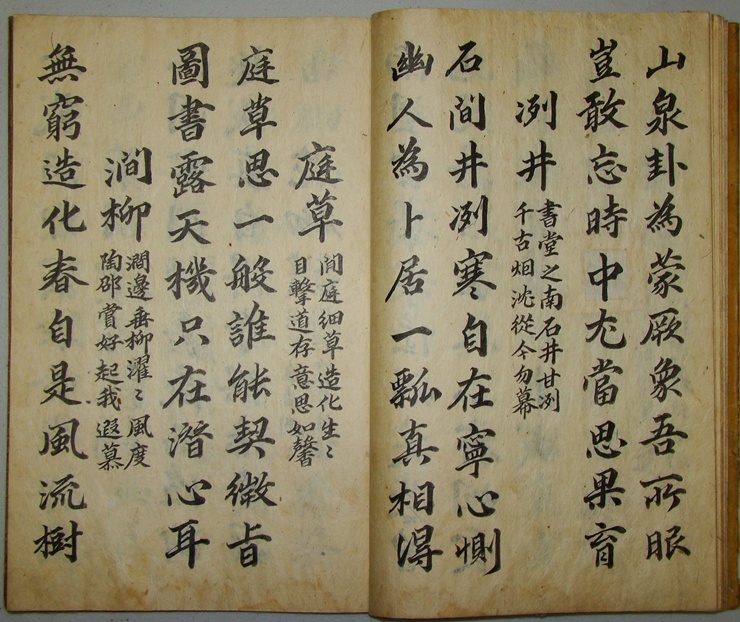 山泉卦為蒙厥象吾所服
豈敢忘時中尤當思果育
冽井
書堂之南石井甘冽
千古烟沈從今勿幕
石間井冽寒自在寧心惻
幽人為卜居一瓢真相得
庭草
閒庭細草造化生〻
目擊道存意思如馨
庭草思一般誰能契微旨
圖書露天機只在潛心耳
澗柳
澗邊垂柳濯〻風度
陶邵賞好起我遐慕
無窮造化春自是風流樹